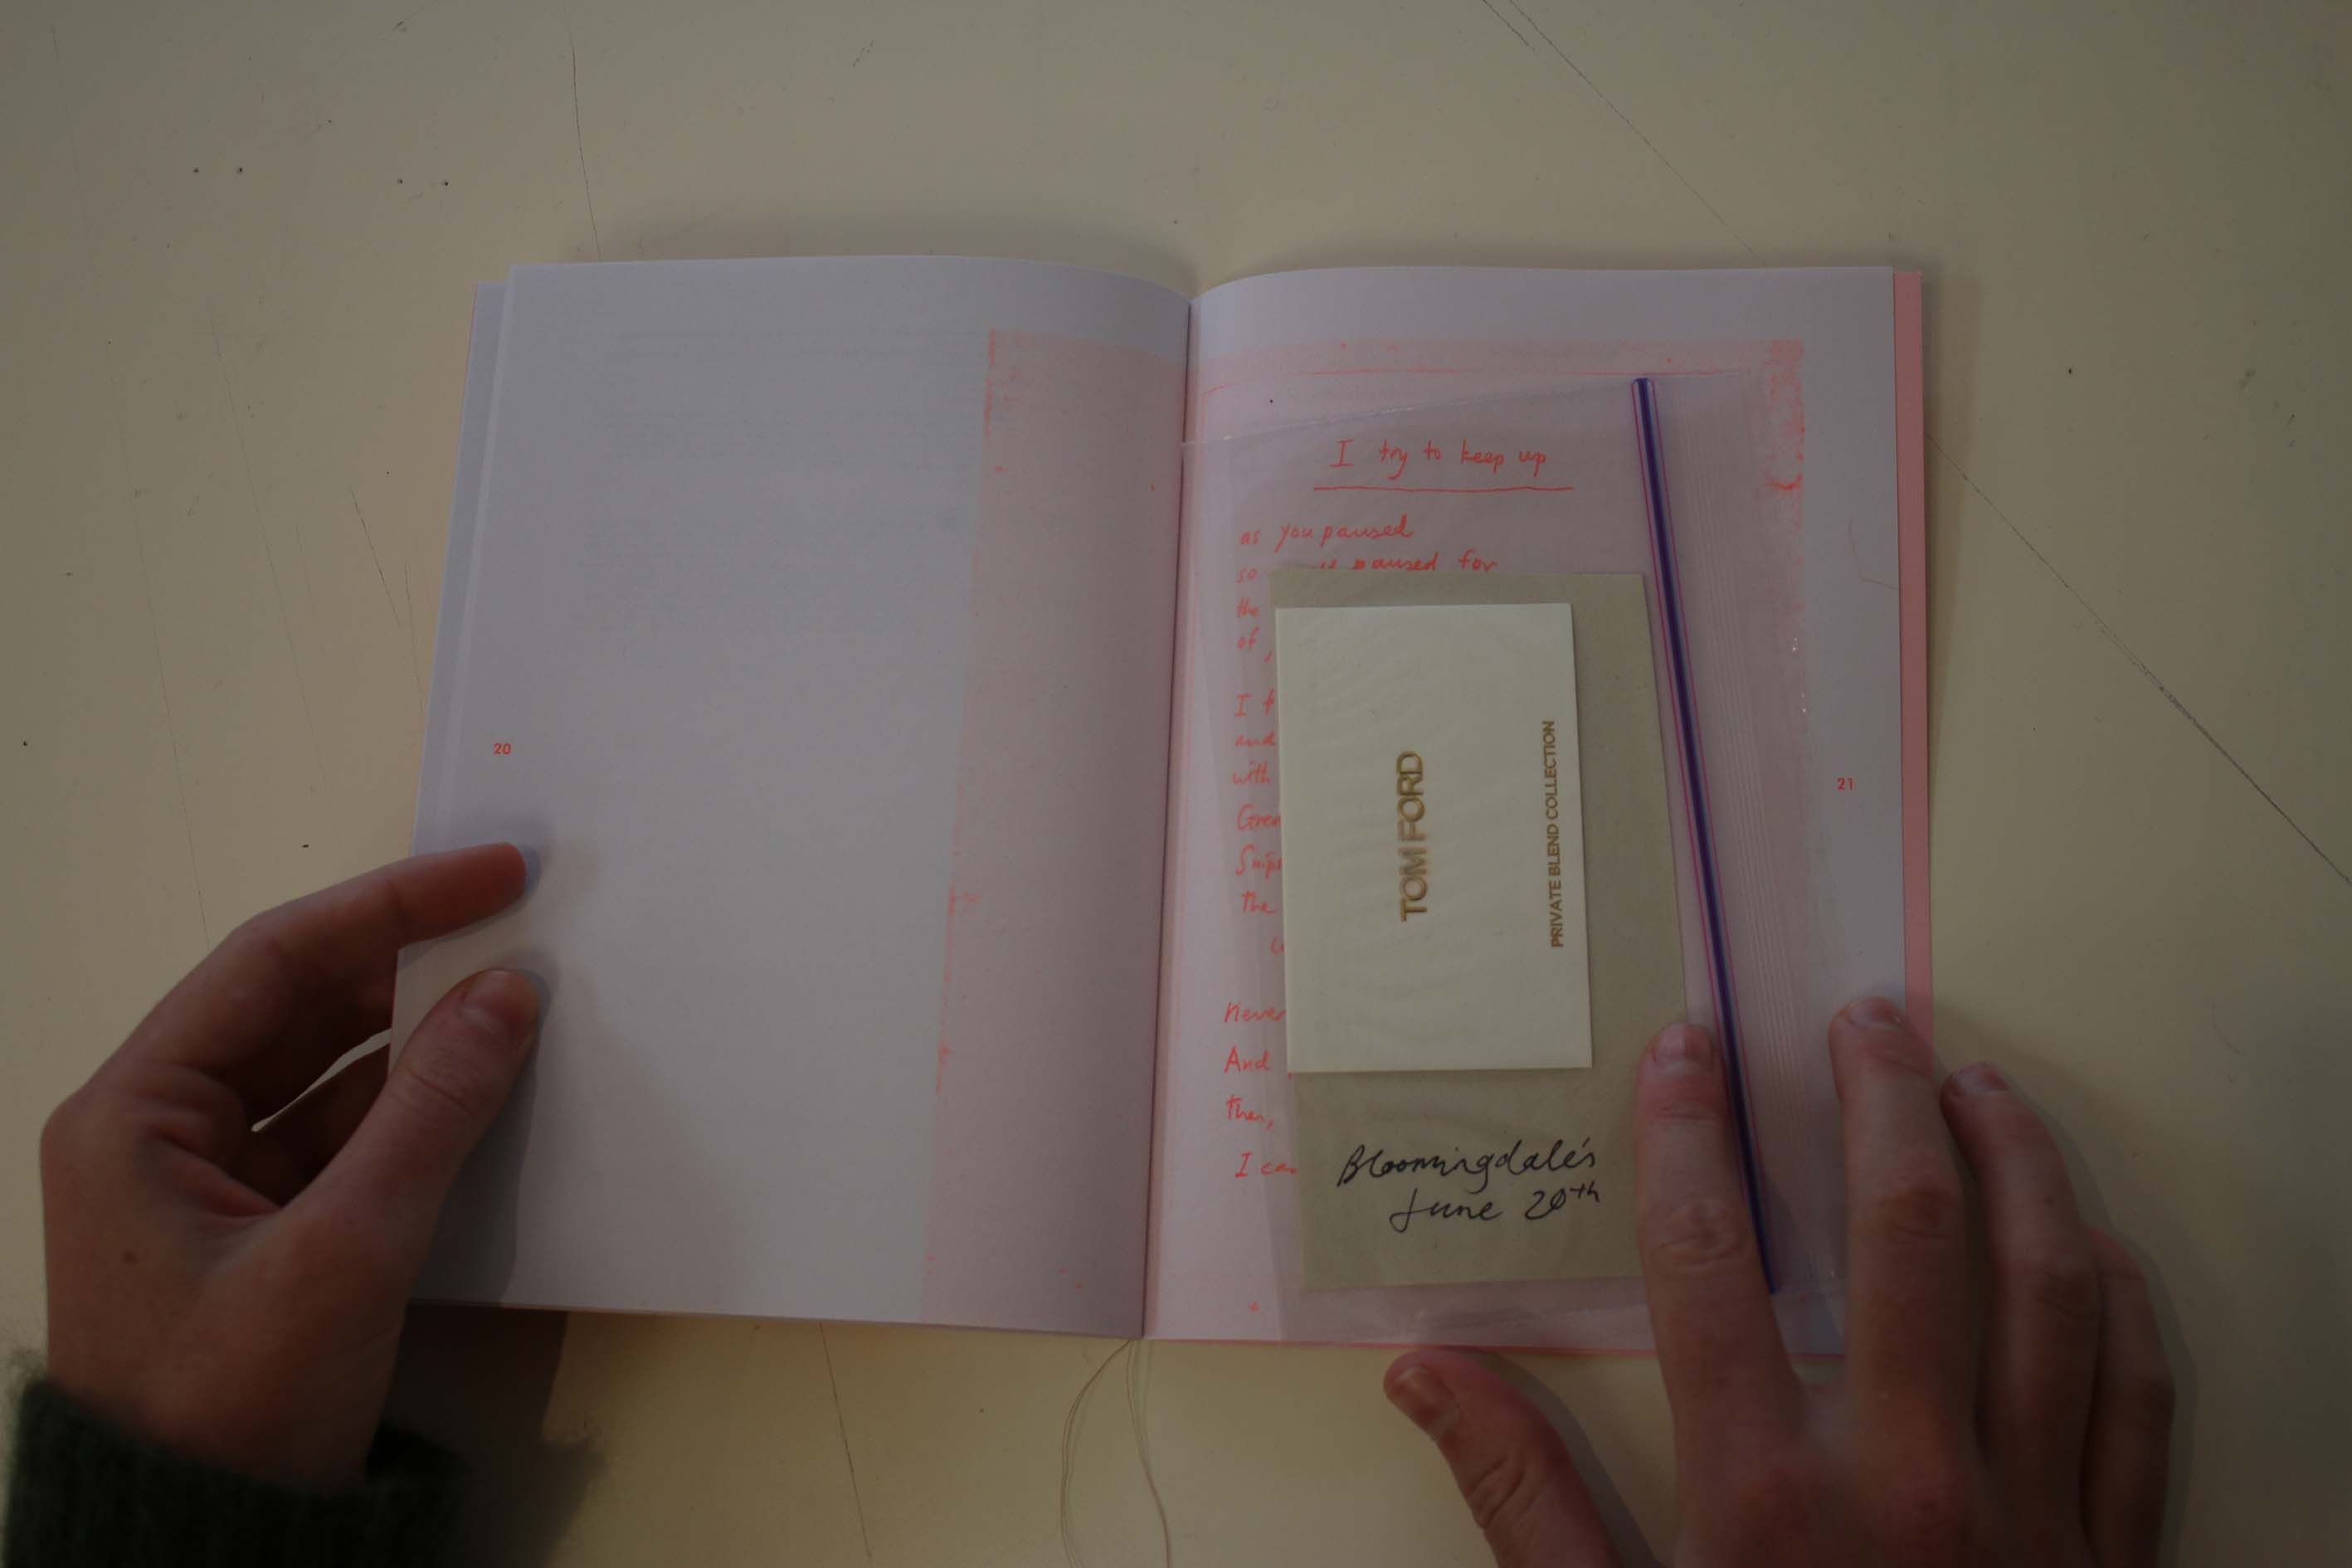 20
I try to keep up
as you paused
so paused for
the
of
I
and
with
the
never
And
then,
I
TOM FORD
PRIVATE BLEND COLLECTION
Bloomingdale's
June 20th
21